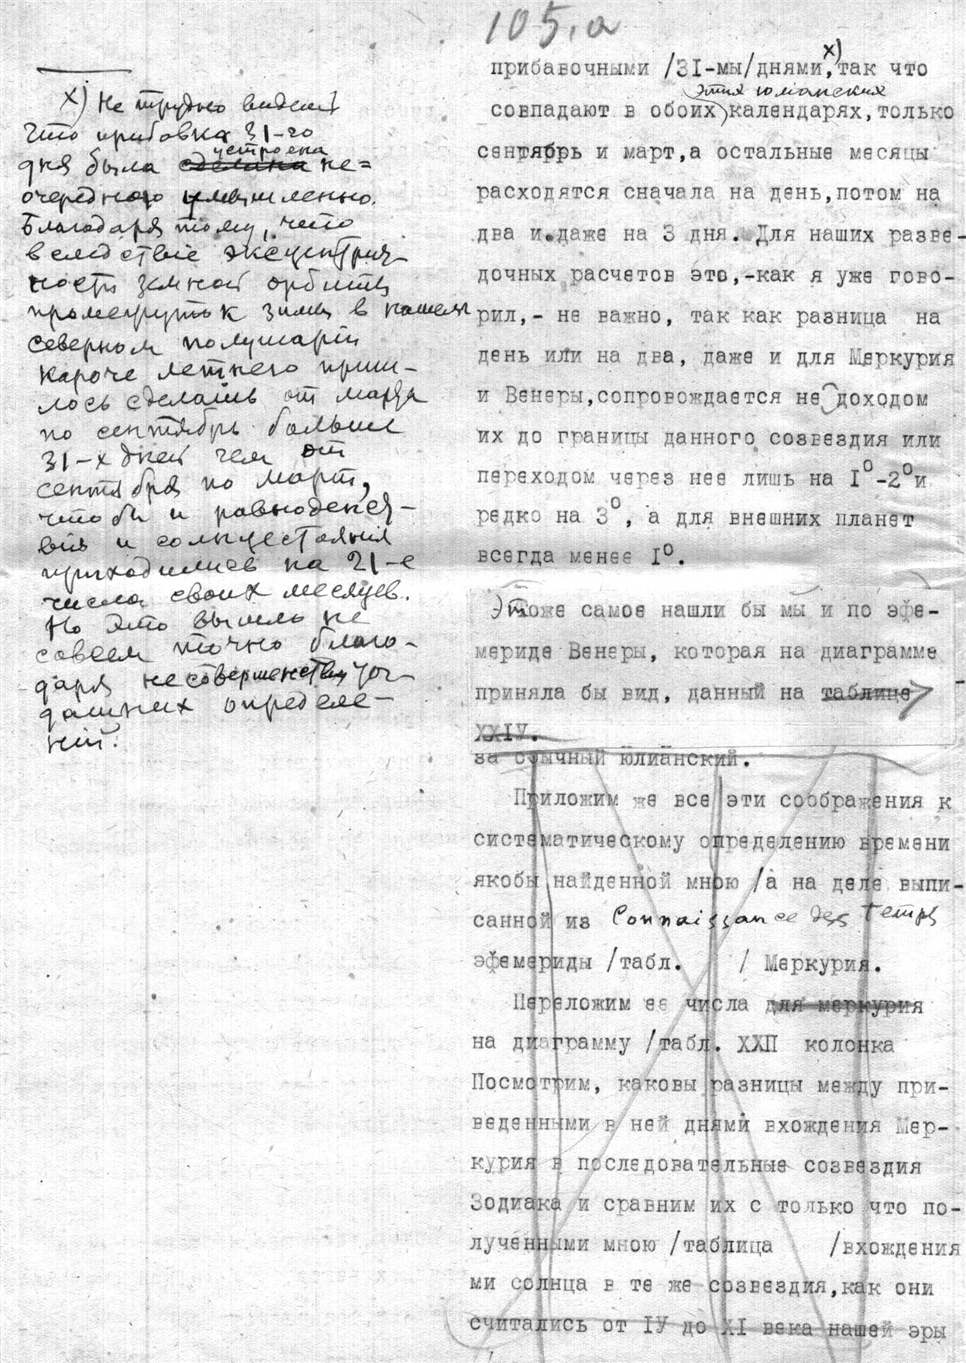 105.а
х) Не трудно видеть
что прибавка 31-го
устроена
дня была сделана не=
очередного умышленно.
Благодаря тому, что
вследствие эксцентрич-
ности земной орбиты
промежуток зимы в нашем
северном полушарии
короче летнего приш-
лось сделать от марта
по сентябрь больше
31-х дней чем от
сентября по март,
чтобы и равноденст-
вия и солнцестояния
приходились на 21-е
числа своих месяцев.
Но это вышло не
совсем точно благо-
даря несовершенству тог-
дашних определе-
ний.
х)
прибавочными /31-мы/днями,так что
этих юлианских
совпадают в обоих календарях,только
сентябрь и март,а остальные месяцы
расходятся сначала на день,потом на
два и даже на 3 дня. Для наших разве-
дочных расчетов это,-как я уже гово-
рил,- не важно, так как разница на
день или на два, даже и для Меркурия
и Венеры,сопровождается не доходом
их до границы данного созвездия или
переходом через нее лишь на 1°-2°и
редко на 3°, а для внешних планет
всегда менее 1°.
Этоже самое нашли бы мы и по эфе-
мериде Венеры, которая на диаграмме
приняла бы вид, данный на таблице
XXIУ.
за обычный юлианский.
Приложим же все эти соображения к
систематическому определению времени
якобы найденной мною /а на деле выпи-
санной из Connaissance des Temps
эфемериды /табл. / Меркурия.
Переложим ее числа для меркурия
на диаграмму /табл. ХХП колонка
Посмотрим, каковы разницы между при-
веденными в ней днями вхождения Мер-
курия в последовательные созвездия
Зодиака и сравним их с только что по-
лученными мною /таблица /вхождения
ми солнца в те же созвездия,как они
считались от IУ до XI века нашей эры